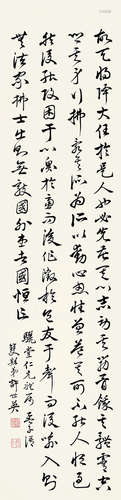 故天將降大任於是人也必先苦其心志勞其筋骨餓其體膚空
乏其身行拂亂其所為所以動心忍性增益其所不能人恆過
然後能改困于心衡于慮而後作徵於色發於聲而後喻入則
無法家拂士出則無敵國外患者國恆亡
堂仁兄 孟子語
弟許世英